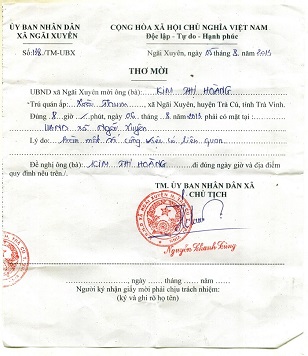 ỦY BAN NHÂN DÂN
XÃ NGÃI XUYÊN
CỘNG HÒA XÃ HỘI CHỦ NGHĨA VIỆT NAM
Độc lập - Tự do - Hạnh phúc
Số: 198/TM-UBX
Ngãi Xuyên, ngày 05 tháng 8 năm 2013
THƠ MỜI
UBND xã Ngãi Xuyên mời ông (bà): KIM THỊ HOÀNG
- Trú quán ấp: xã Ngãi Xuyên, huyện Trà Cú, tỉnh Trà Vinh.
Đúng 8 giờ phút, ngày 06 tháng 8 năm 2013 có mặt tại:
UBND xã Ngãi Xuyên
Lý do: mặt có công việc có liên quan
Đề nghị ông (bà): KIM THỊ HOÀNG đi đúng ngày giờ và địa điểm
quy định nêu trên./.
TM. ỦY BAN NHÂN DÂN XÃ
CHỦ TỊCH
Nguyễn Khanh Cùng
ngày tháng năm
Người ký nhận giấy mời phải chịu trách nhiệm:
(ký và ghi rõ họ tên)